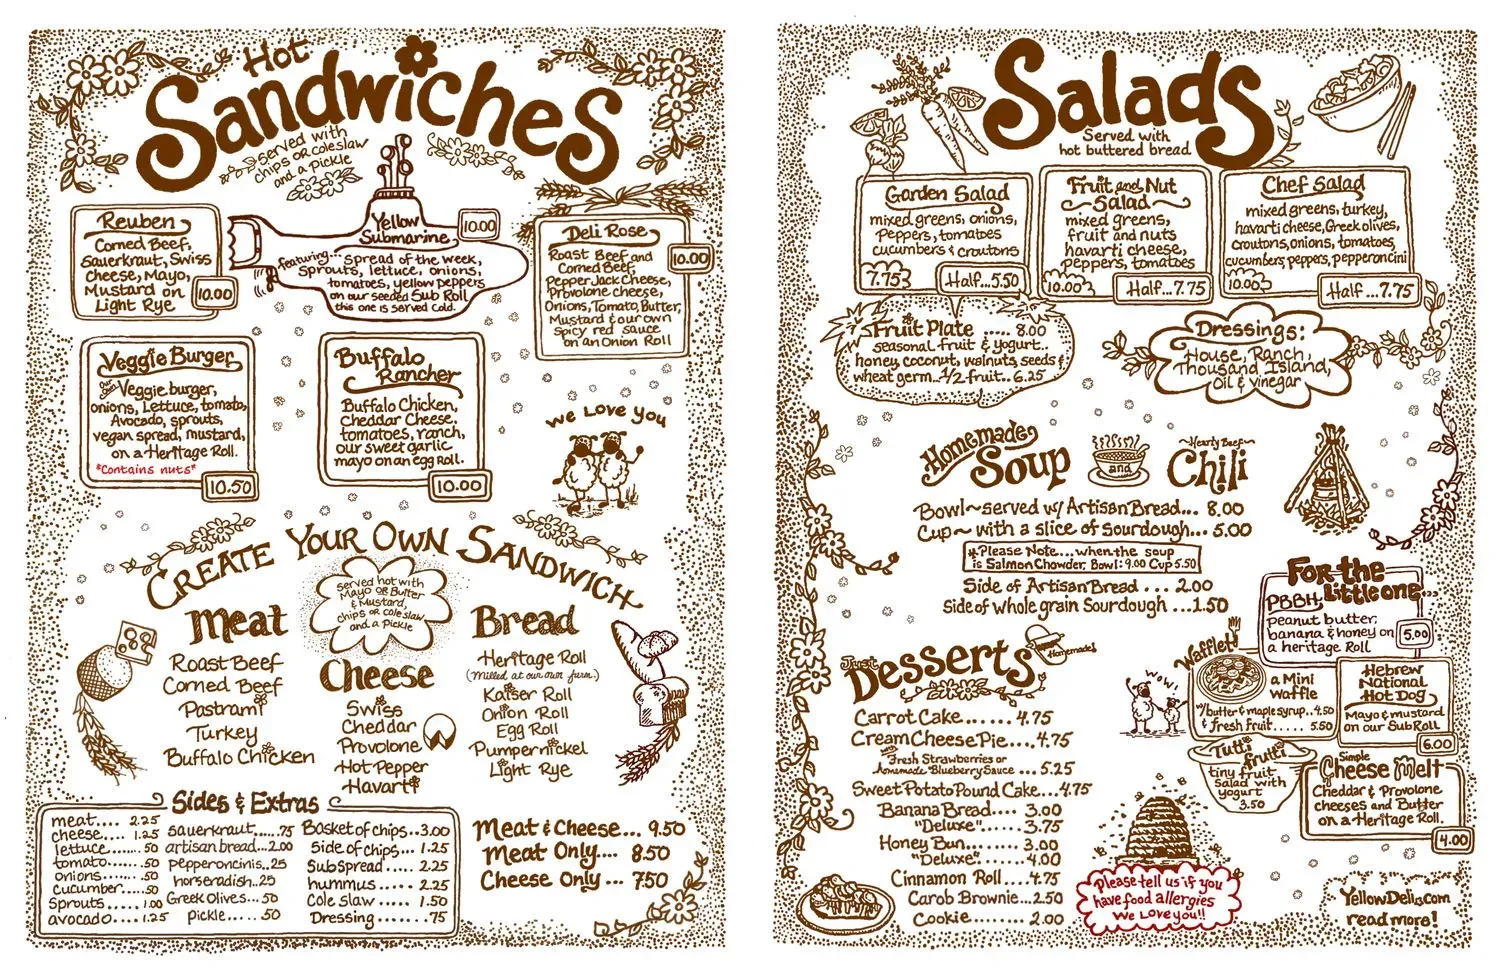 Hot
Sandwiches
served with
chips or coleslaw
and a pickle
Reuben
Corned Beef,
Sauerkraut, Swiss
Cheese, Mayo,
Mustard on
Light Rye
10.00
Yellow
Submarine
10.00
featuring... spread of the week,
sprouts, lettuce, onions,
tomatoes, yellow peppers
on our seeded Sub Roll
this one is served cold.
Deli Rose
10.00
Roast Beef and
Corned Beef,
Pepper Jack Cheese,
Provolone cheese,
Onions, Tomato, Butter,
Mustard & our own
spicy red sauce
on an Onion Roll
Veggie Burger
Our Own Veggie burger,
onions, Lettuce, tomato,
Avocado, sprouts,
vegan spread, mustard,
on a Heritage Roll.
*Contains nuts*
10.50
Buffalo
Rancher
Buffalo Chicken,
Cheddar Cheese
tomatoes, ranch,
our sweet garlic
mayo on an egg Roll.
10.00
We Love You
Create Your Own Sandwich
served hot with
Mayo or Butter
& Mustard,
chips or cole slaw
and a pickle
Meat
Roast Beef
Corned Beef
Pastrami
Turkey
Buffalo Chicken
Cheese
Swiss
Cheddar
Provolone
Hot Pepper
Havarti
Bread
Heritage Roll
(Milled at our own farm.)
Kaiser Roll
Onion Roll
Egg Roll
Pumpernickel
Light Rye
Sides & Extras
meat.... 2.25
cheese.... 1.25
lettuce....... .50
tomato....... .50
onions....... .50
cucumber..... .50
sprouts .... 1.00
avocado .... 1.25
sauerkraut..... .75
artisan bread... 2.00
pepperoncinis.. .25
horseradish.. .25
Greek olives... .50
pickle..... .50
Basket of chips.. 3.00
Side of chips... 1.25
Sub Spread..... 2.25
hummus ..... 2.25
Cole slaw ..... 1.50
Dressing ..... .75
Meat & Cheese... 9.50
Meat Only.... 8.50
Cheese Only ... 7.50
Salads
Served with
hot buttered bread
Garden Salad
mixed greens, onions,
peppers, tomatoes
cucumbers & croutons
7.75
Half...5.50
Fruit and Nut
Salad
mixed greens,
fruit and nuts
havarti cheese,
peppers, tomatoes
10.00
Half...7.75
Chef Salad
mixed greens, turkey,
havarti cheese, Greek olives,
croutons, onions, tomatoes,
cucumbers, peppers, pepperoncini
10.00
Half ...7.75
Fruit Plate ..... 8.00
seasonal fruit & yogurt..
honey, coconut, walnuts, seeds &
wheat germ... 1/2 fruit.. 6.25
Dressings:
House, Ranch,
Thousand Island,
Oil & vinegar
Homemade
Soup
and
~Hearty Beef~
Chili
Bowl~served w/ Artisan Bread... 8.00
Cup~ with a slice of sourdough... 5.00
*Please Note....when the soup
is Salmon Chowder, Bowl: 9.00 Cup 5.50
Side of Artisan Bread ... 2.00
Side of whole grain Sourdough ...1.50
Just
Desserts
Homemade!
Carrot Cake....... 4.75
Cream Cheese Pie....4.75
with Fresh Strawberries or
Homemade Blueberry Sauce ... 5.25
Sweet Potato Pound Cake...4.75
Banana Bread.... 3.00
"Deluxe"...... 3.75
Honey Bun.... 3.00
"Deluxe"...... 4.00
Cinnamon Roll ....4.75
Carob Brownie...2.50
Cookie ..... 2.00
For the
Little one...
PBBH
peanut butter,
banana & honey on
a heritage Roll
5.00
Wow!
Wafflet!
a Mini
Waffle
w/butter & maple syrup...4.50
& fresh fruit ..... 5.50
Hebrew
National
Hot Dog
Mayo & mustard
on our Sub Roll
6.00
Tutti
frutti
tiny fruit
Salad with
yogurt
3.50
Simple
Cheese Melt
Cheddar & Provolone
cheeses and Butter
on a Heritage Roll.
4.00
Please tell us if you
have food allergies
We Love you!!
YellowDeli.com
read more!